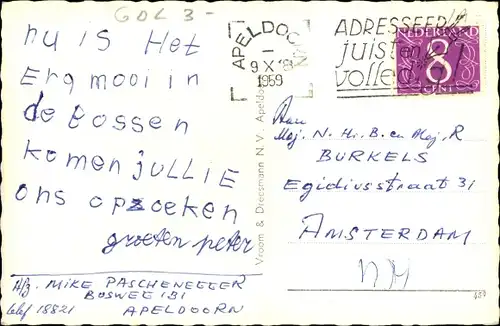 GDL 3-
nu is Het
Erg mooi in
de bossen
komen JULLIE
ons opzoeken
groeten peter
Afz. MIKE PASCHENEGGER
BOSWEG 131
telef 18821 APELDOORN
Vroom & Dreesmann N.V. Apeldoorn
APELDOORN
9 X 18
1959
ADRESSEER
juist en
volledig
NEDERLAND
8
CENT
Aan
Mej. N. Hr. B. en Mej. R
BURKELS
Egidiusstraat 31
AMSTERDAM
NH